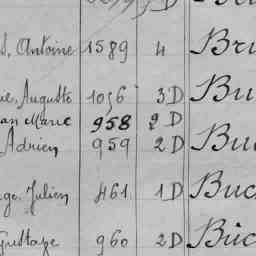 Antoine 1589 4 Bru
Auguste 1056 3D Bu
an Marie 958 2D
Adrien 959 2D Bu
Julien 461 1D Buc
Gustave 960 2D Buc